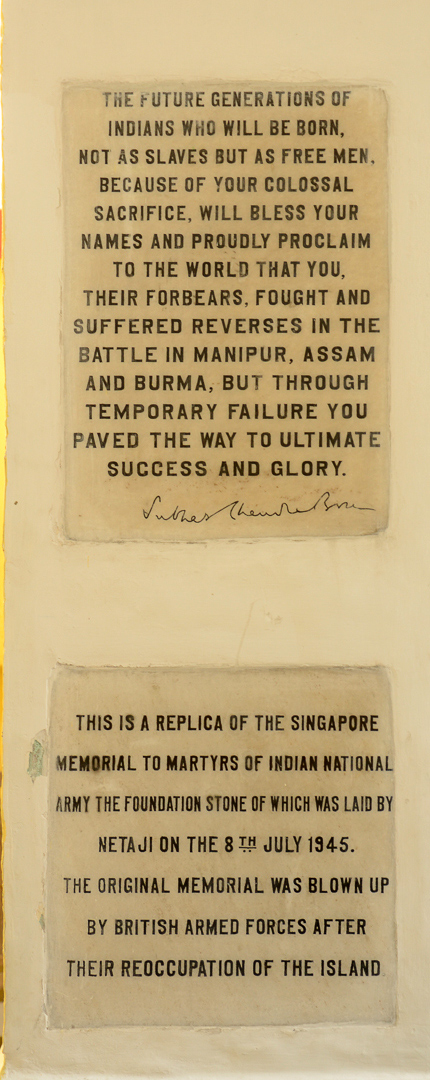 THE FUTURE GENERATIONS OF
INDIANS WHO WILL BE BORN,
NOT AS SLAVES BUT AS FREE MEN,
BECAUSE OF YOUR COLOSSAL
SACRIFICE, WILL BLESS YOUR
NAMES AND PROUDLY PROCLAIM
TO THE WORLD THAT YOU,
THEIR FORBEARS, FOUGHT AND
SUFFERED REVERSES IN THE
BATTLE IN MANIPUR, ASSAM
AND BURMA, BUT THROUGH
TEMPORARY FAILURE YOU
PAVED THE WAY TO ULTIMATE
SUCCESS AND GLORY.
Subhas Chandra Bose
THIS IS A REPLICA OF THE SINGAPORE
MEMORIAL TO MARTYRS OF INDIAN NATIONAL
ARMY THE FOUNDATION STONE OF WHICH WAS LAID BY
NETAJI ON THE 8TH JULY 1945.
THE ORIGINAL MEMORIAL WAS BLOWN UP
BY BRITISH ARMED FORCES AFTER
THEIR REOCCUPATION OF THE ISLAND